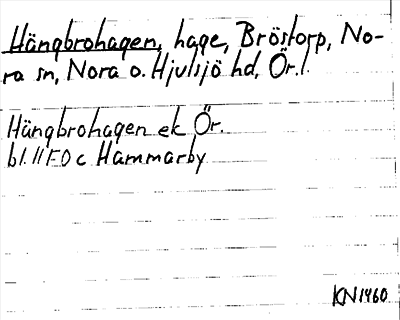 Hängbrohagen, hage, Bröstorp, No-
ra sn, Nora o. Hjulsjö hd, Ör. l.
Hängbrohagen ek Ör.
bl. 11F0c Hammarby
KN1960